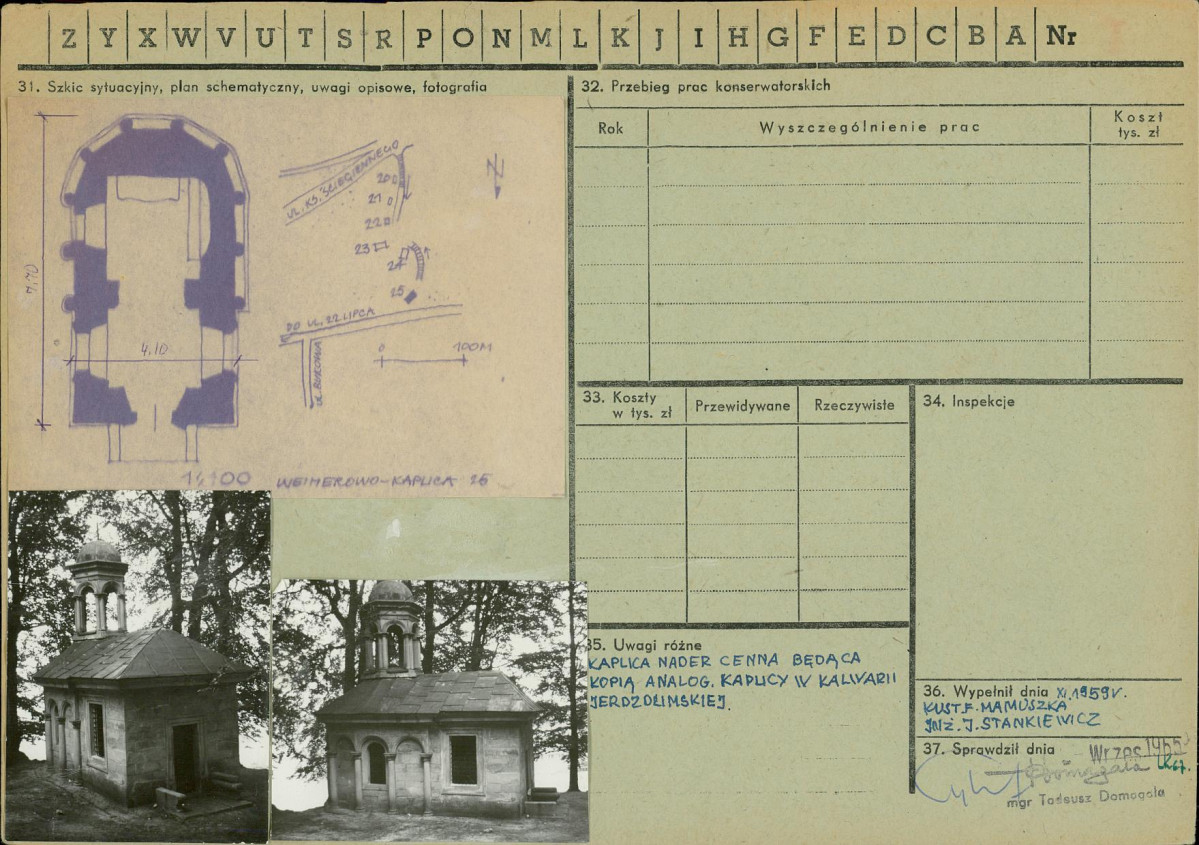 Z Y X W V U T S R P O N M L K J I H G F E D C B A Nr
31. Szkic sytuacyjny, plan schematyczny, uwagi opisowe, fotografia
7,70
4.10
UL. KS. ŚCIEGIENNEGO
N
20
21
22
23
24
25
DO UL. 22 LIPCA
UL. BUKOWA
0 100M
1:100 WEJHEROWO-KAPLICA 25
32. Przebieg prac konserwatorskich
Rok
Wyszczególnienie prac
Koszt
tys. zł
33. Koszty
w tys. zł
Przewidywane
Rzeczywiste
34. Inspekcje
35. Uwagi różne
KAPLICA NADER CENNA BĘDĄCA
KOPIĄ ANALOG. KAPLICY W KALWARII
JERDZOLIMSKIEJ.
36. Wypełnił dnia XI.1959 r.
KUST. F. MAMUSZKA
INŻ. J. STANKIEWICZ
37. Sprawdził dnia
mgr Tadeusz Domagała